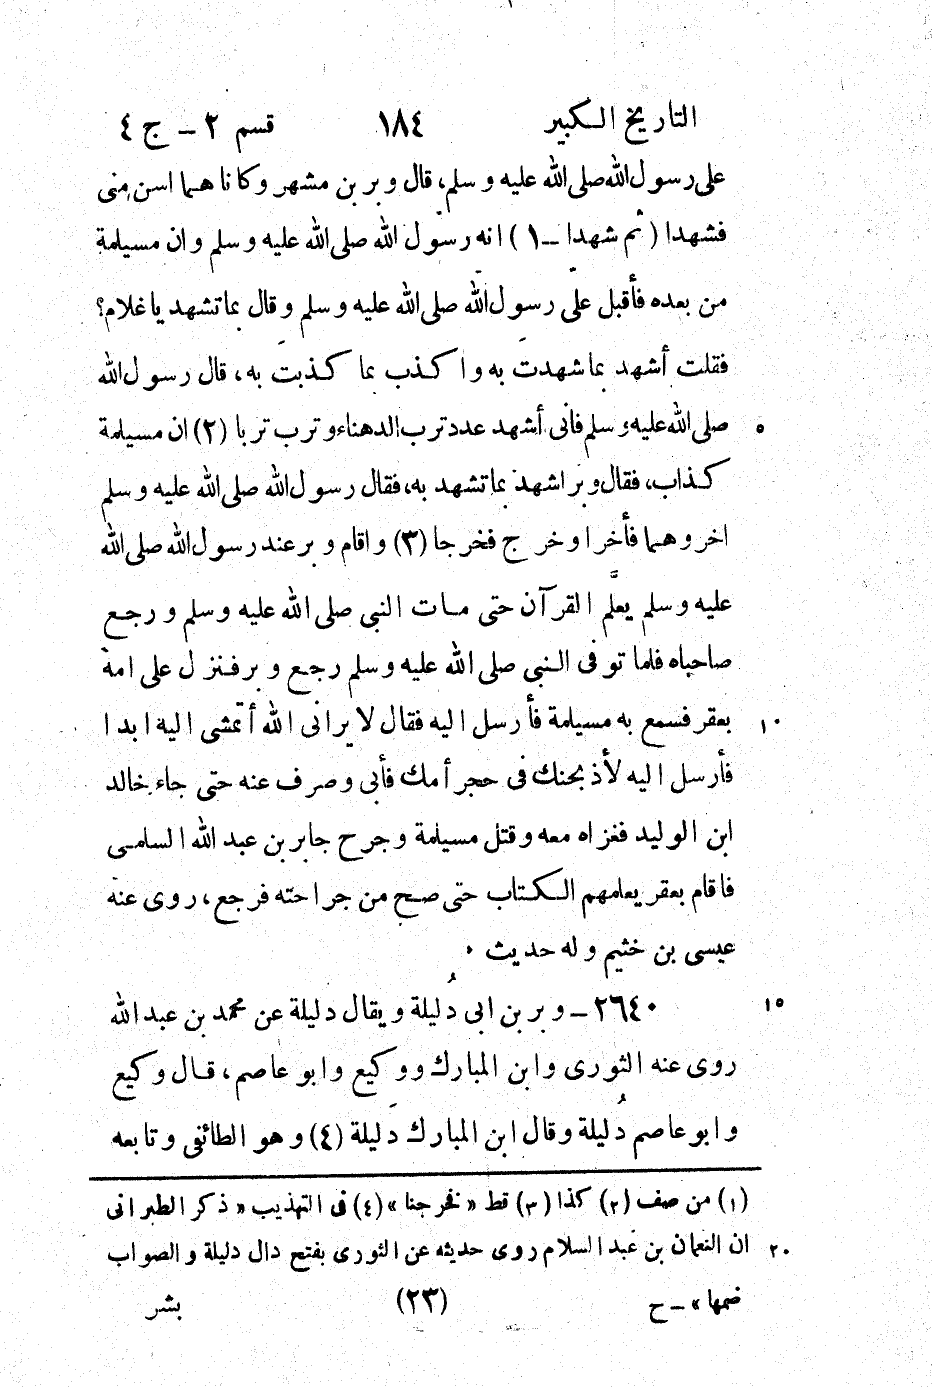 التاريخ الكبير ١٨٤ قسم ٢ - ج ٤
على رسول الله صلى الله عليه وسلم، قال وبر بن مشهر وكانا هما اسن منى
فشهدا (ثم شهدا - ١) انه رسول الله صلى الله عليه وسلم وان مسيلمة
من بعده فأقبل علىّ رسول الله صلى الله عليه وسلم وقال بما تشهد ياغلام؟
فقلت أشهد بما شهدتَ به واكذب بما كذبتَ به، قال رسول الله
صلى الله عليه وسلم فانى أشهد عدد ترب الدهناء وترب تربا (٢) ان مسيلمة ٥
كذاب، فقال وبر اشهد بما تشهد به، فقال رسول الله صلى الله عليه وسلم
اخروهما فأخرا وخرج فخرجا (٣) واقام وبر عند رسول الله صلى الله
عليه وسلم يعلَّم القرآن حتى مات النبى صلى الله عليه وسلم ورجع
صاحباه فلما توفى النبى صلى الله عليه وسلم رجع وبر فنزل على امه
بعقر فسمع به مسيلمة فأرسل اليه فقال لا يرانى الله أتمشى اليه ابدا ١٠
فأرسل اليه لأذبحنك فى حجر أمك فأبى وصرف عنه حتى جاء خالد
ابن الوليد فغزاه معه وقتل مسيلمة وجرح جابر بن عبد الله السامى
فاقام بعقر يعلمهم الكتاب حتى صح من جراحته فرجع، روى عنه
عيسى بن خثيم وله حديث ٠
٢٦٤٠ - وبر بن ابى دُليلة ويقال دليلة عن محمد بن عبد الله ١٥
روى عنه الثورى وابن المبارك ووكيع وابو عاصم، قال وكيع
وابو عاصم دُليلة وقال ابن المبارك دَليلة (٤) وهو الطائفى وتابعه
(١) من صف (٢) كذا (٣) قط « فخرجنا » (٤) فى التهذيب « ذكر الطبرانى
ان النعمان بن عبد السلام روى حديثه عن الثورى بفتح دال دليلة والصواب ٢٠
ضمها » - ح (٢٣) بشر